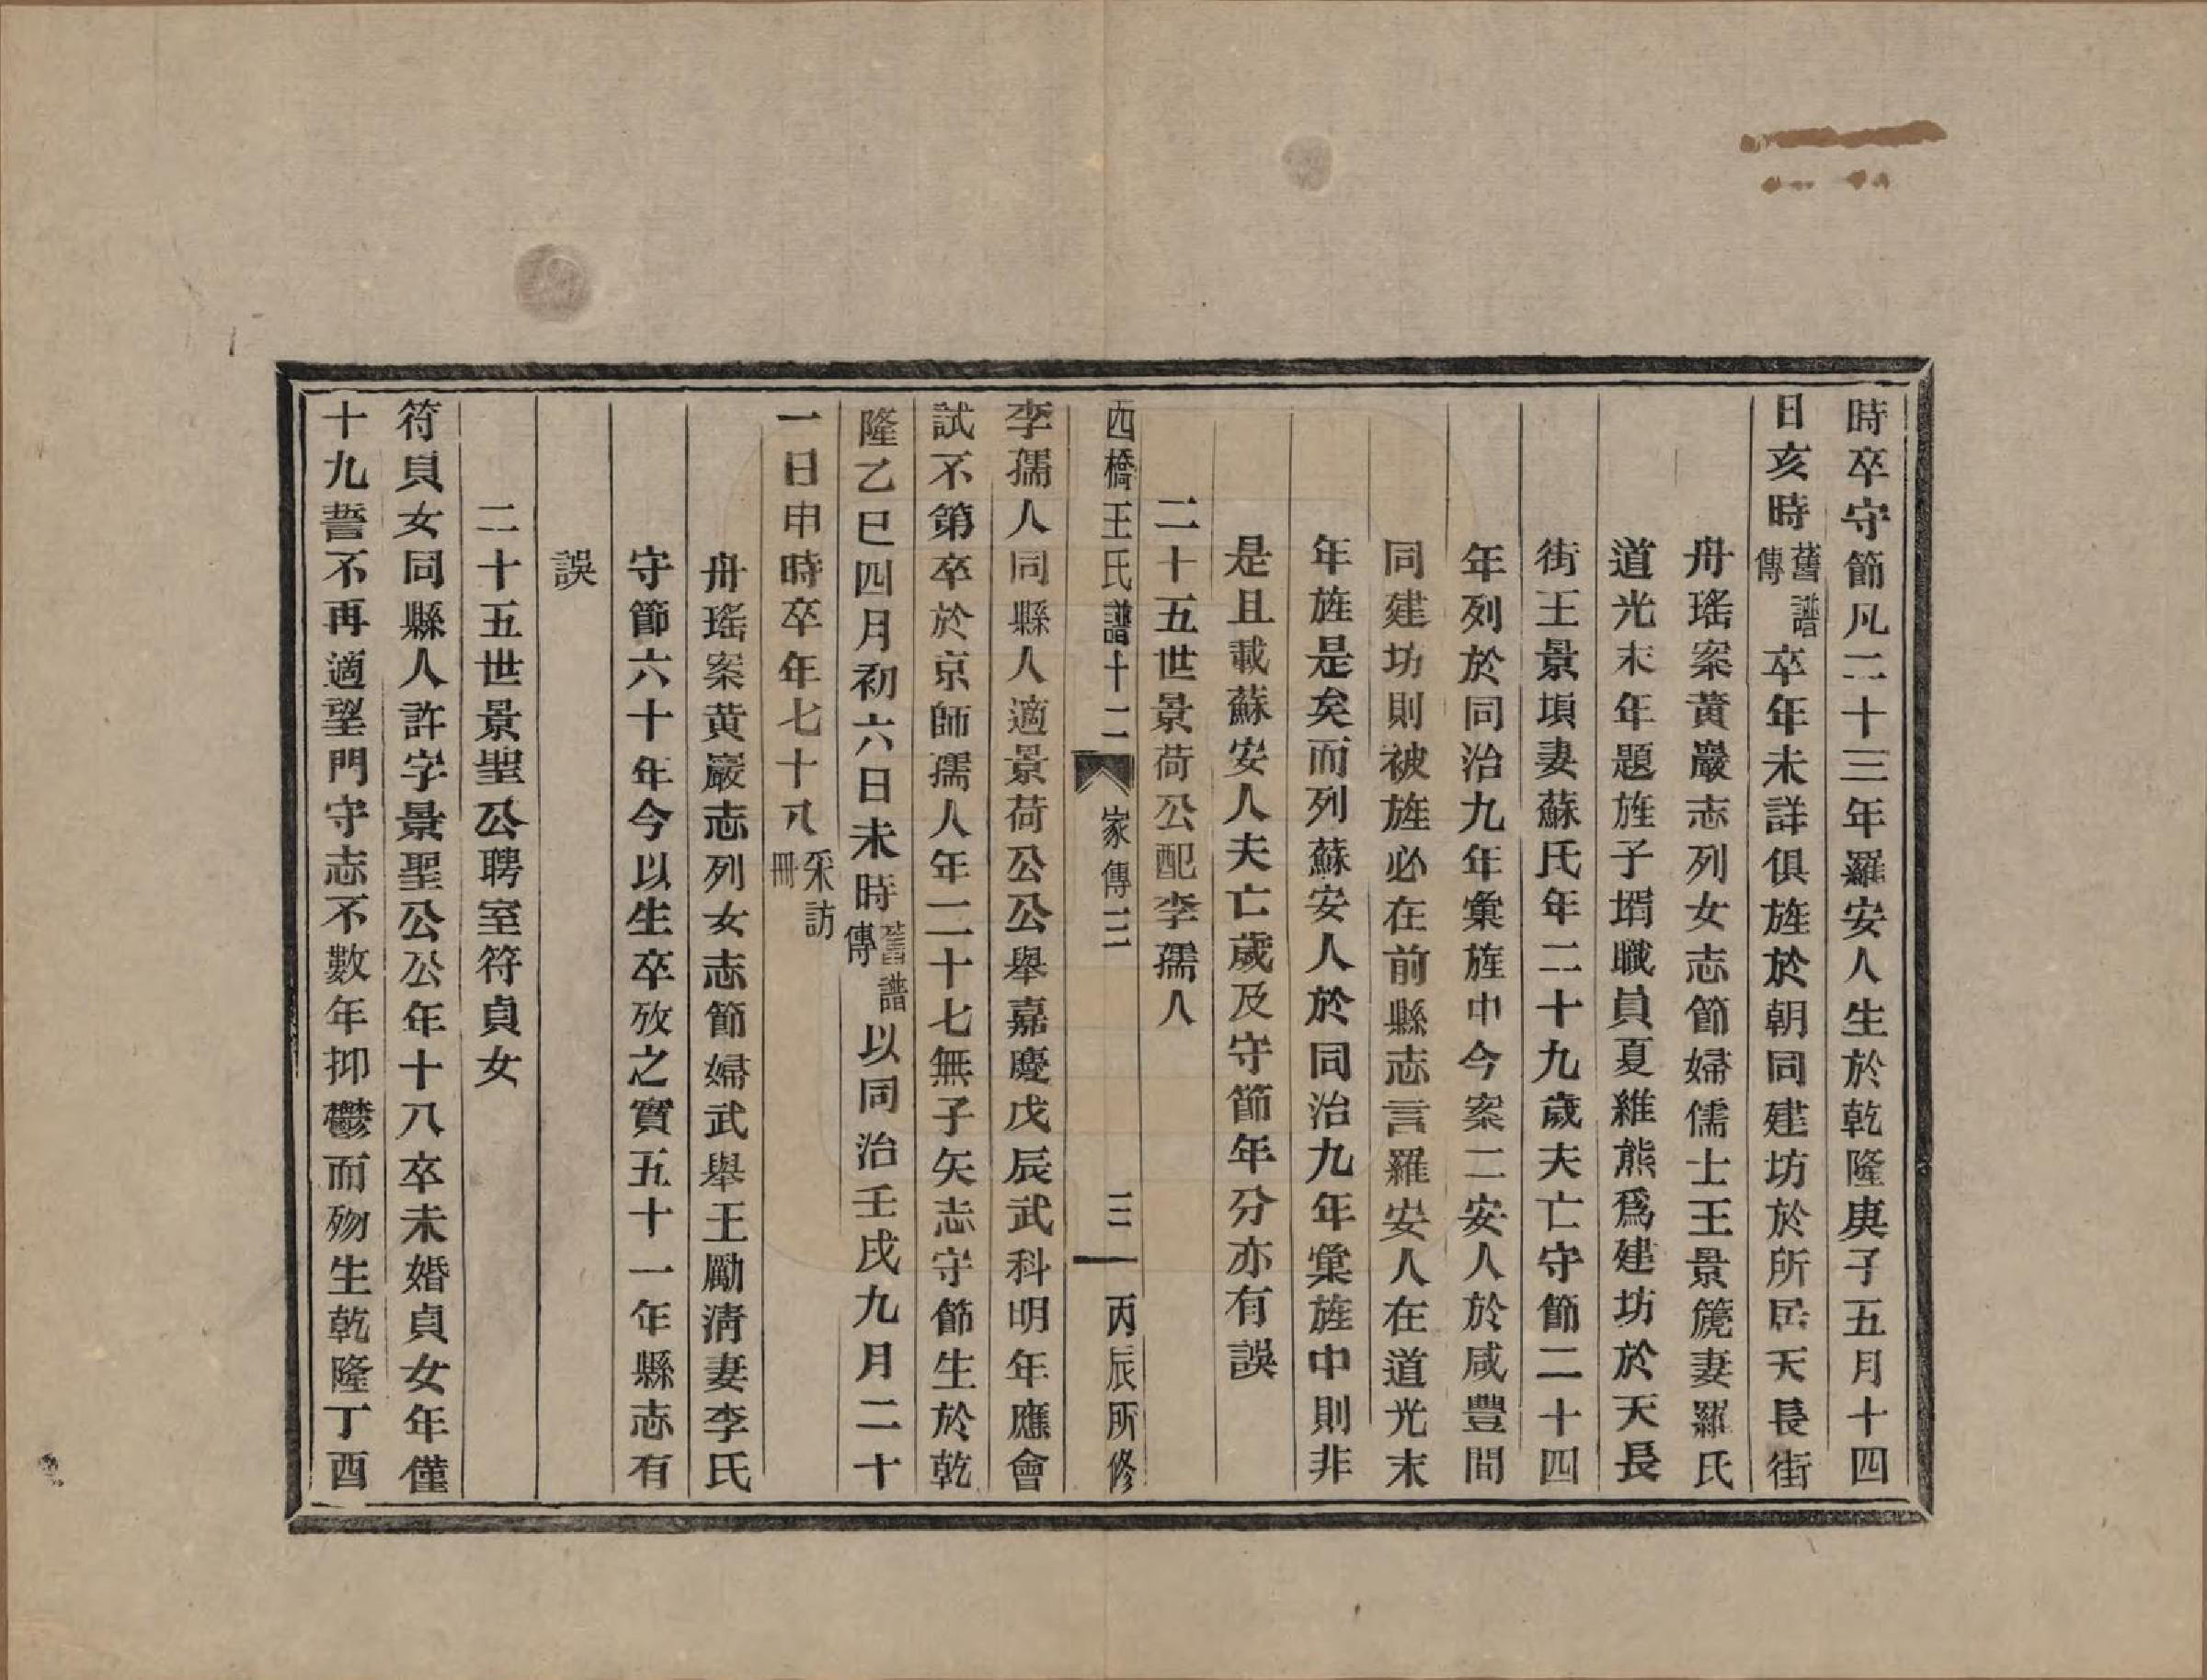 時卒守節凡二十三年羅安人生於乾隆庚子五月十四
日亥時舊譜傳卒年未詳俱旌於朝同建坊於所居天長街
舟瑤案黃巖志列女志節婦儒士王景篪妻羅氏
道光末年題旌子壻職員夏維熊爲建坊於天長
街王景塤妻蘇氏年二十九歲夫亡守節二十四
年列於同治九年彙旌中今案二安人於咸豐間
同建坊則被旌必在前縣志言羅安人在道光末
年旌是矣而列蘇安人於同治九年彙旌中則非
是且載蘇安人夫亡歲及守節年分亦有誤
二十五世景荷公配李孺人
西橋王氏譜十二 家傳三 三 丙辰所修
李孺人同縣人適景荷公公舉嘉慶戊辰武科明年應會
試不第卒於京師孺人年二十七無子矢志守節生於乾
隆乙巳四月初六日未時舊譜傳以同治壬戌九月二十
一日申時卒年七十八采訪冊
舟瑤案黃巖志列女志節婦武舉王勵淸妻李氏
守節六十年今以生卒攷之實五十一年縣志有
誤
二十五世景聖公聘室符貞女
符貞女同縣人許字景聖公公年十八卒未婚貞女年僅
十九誓不再適望門守志不數年抑鬱而歾生乾隆丁酉